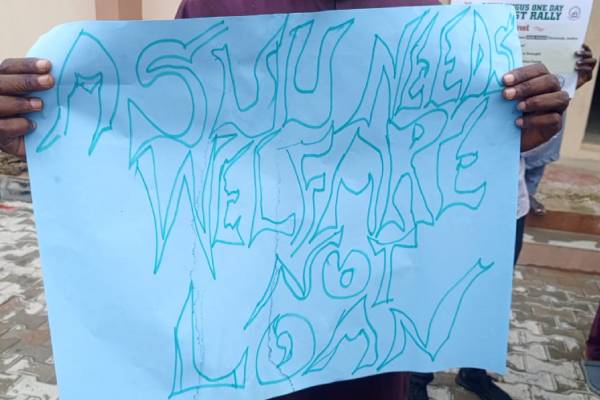 ASUU NEEDS
WELFARE
NOT
LOAN
ONE DAY
ST RALLY